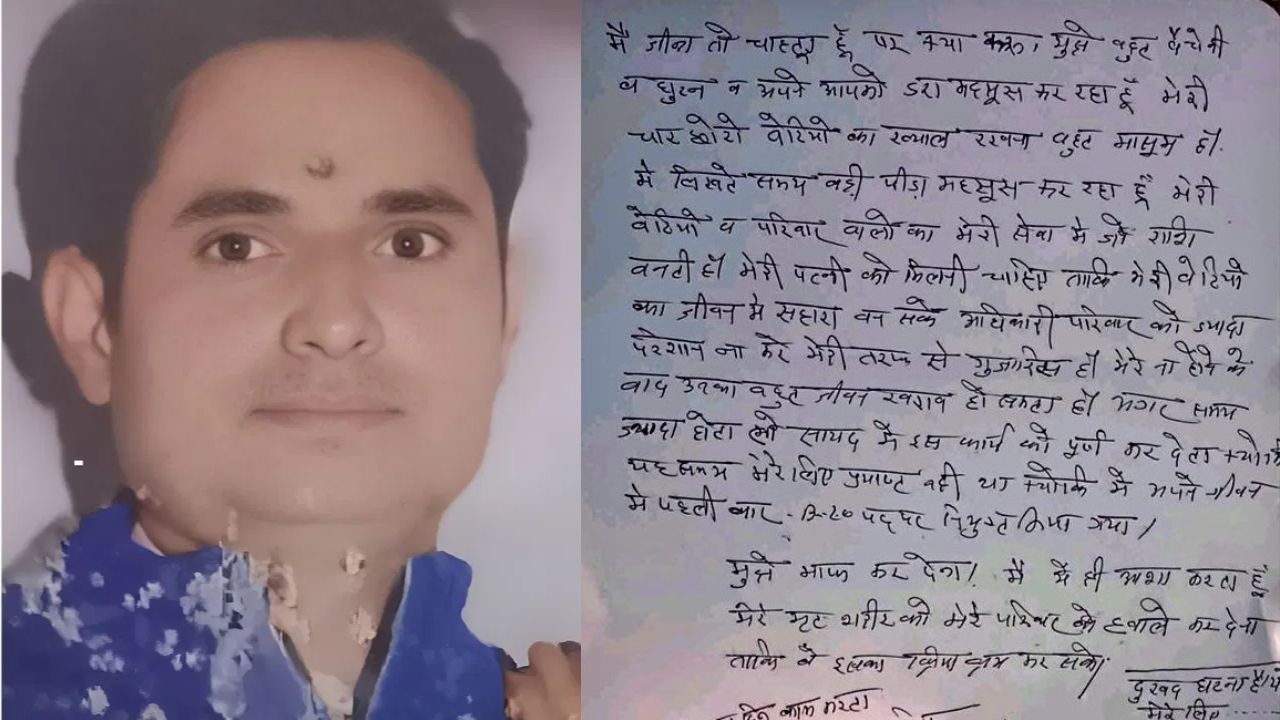 मै जीना तो चाहता हूँ पर क्या करू। मुझे बहुत बैचेनी
व घुटन व अपने आपको डरा महसूस कर रहा हूँ मेरी
चार छोटी बेटियो का ख्याल रखना बहुत मासूम हॉ.
मे लिखते समय बडी पीडा महसूस कर रहा हूँ मेरी
बेटियो व परिवार वालो का मेरी सेवा मे जो राशि
बनती हॉ मेरी पत्नी को मिलनी चाहिए ताकि मेरी बेटियो
का जीवन मे सहारा बन सके अधिकारी परिवार को ज्यादा
परेशान ना करे मेरी तरफ से गुजारिस हॉ मेरे ना होने के
बाद उनका बहुत जीवन खराब हो सकता हॉ अगर समय
ज्यादा होता तो सायद मै इस कार्य को पूर्ण कर देता
यह समय मेरे लिए नही था क्योकि मै अपने जीवन
मे पहली बार पद पर नियुक्त किया गया।
मुझे माफ कर देना। मै ये ही आशा करता हूँ
मेरे मृत शरीर को मेरे परिवार के हवाले कर देना
ताकि वे इसका क्रिया कर सके।
दुखद घटना है
काम करता
मेरे लिए